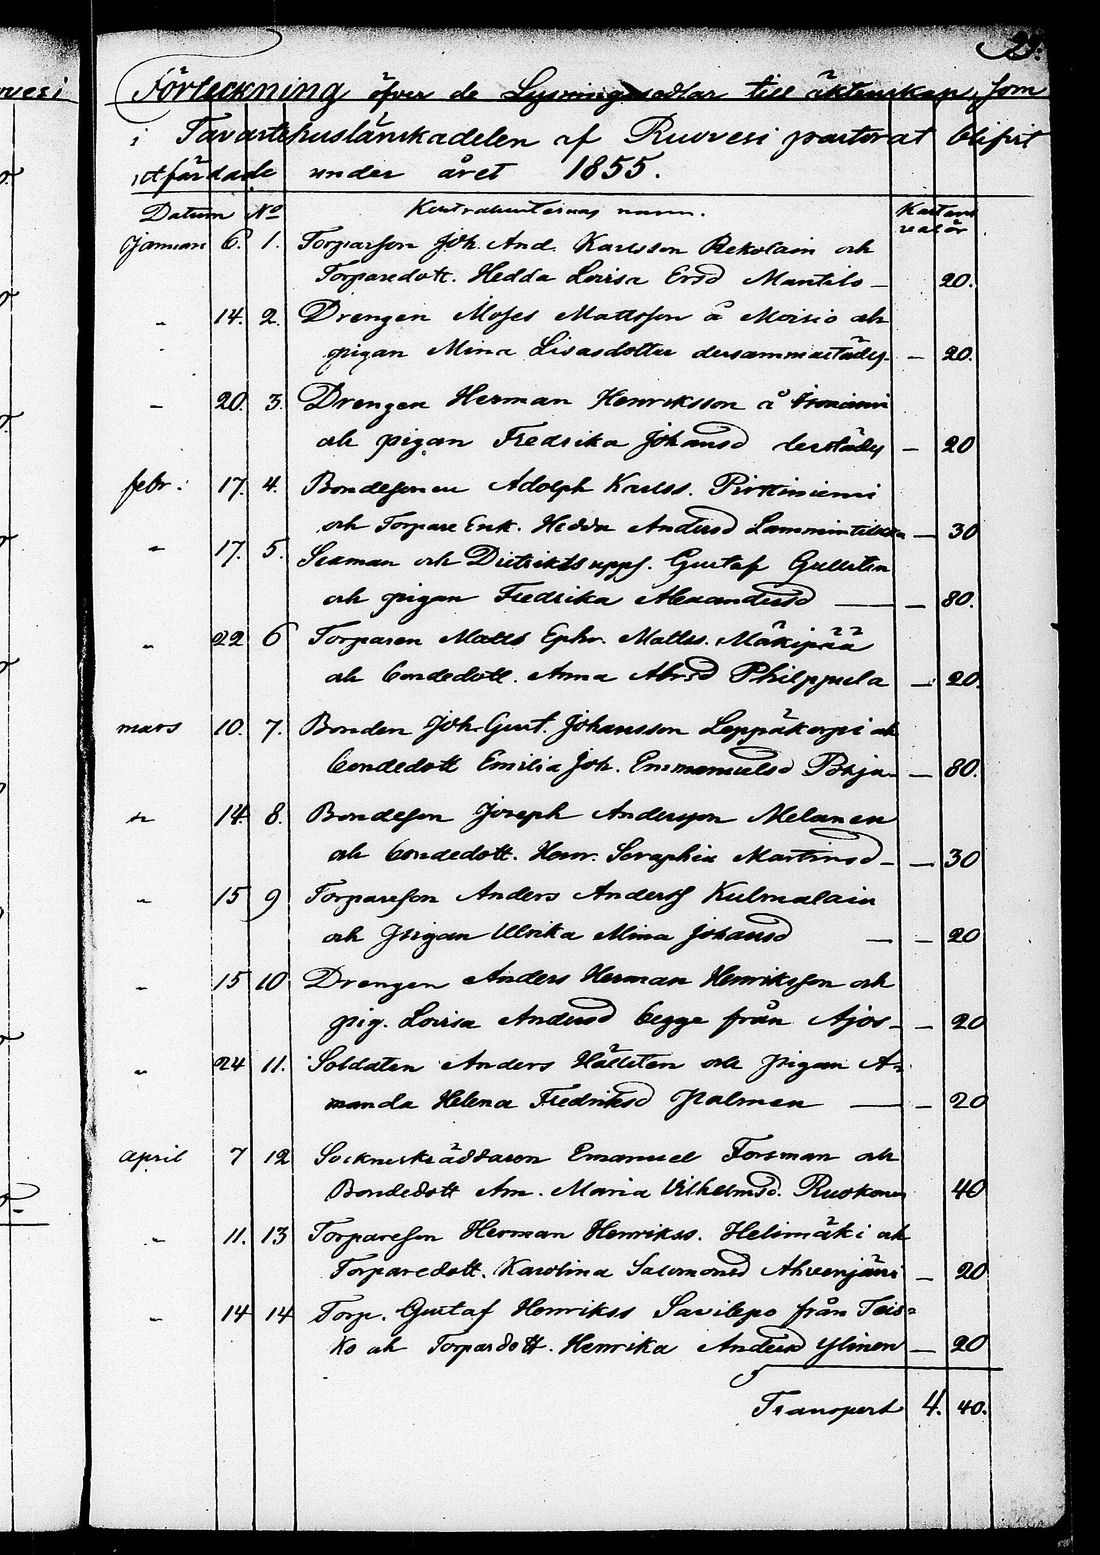 21.
Förteckning öfver de Lysningssedlar till äktenskap, som
i Tavastehuslänskadelen af Ruovesi pastorat blifvit
utfärdade under året 1855.
Datum No Kontrahenternas namn. Kartans valör
Januari 6. 1. Torparson Joh. And. Karlsson Rekolain och
Torparedott. Hedda Lovisa Ersd Mantilo — 20.
" 14. 2. Drengen Moses Mattsson å Moisio och
pigan Mina Lisasdotter dersammastädes — 20.
" 20. 3. Drengen Herman Henriksson å
och pigan Fredrika Johansd derstädes — 20
febr. 17. 4. Bondesonen Adolph Karlss. Pirttiniemi
och Torpare Enk. Hedda Andersd — 30
" 17. 5. Sexman och Districtsupps. Gustaf Gullsten
och pigan Fredrika Alexandersd — — 80.
" 22 6 Torparen Matts Ephr. Matts. Mäkipää
och bondedott. Anna Abrsd Philppula — 20.
mars 10. 7. Bonden Joh. Gust. Johansson Leppäkorpi och
bondedott Emilia Joh. Emmanuelsd Pohja — 80.
" 14. 8. Bondeson Joseph Andersson Melanen
och bondedott. Henr. Seraphia Martinsd — — 30
" 15 9 Torpareson Anders Anderss Kulmalain
och Pigan Ulrika Mina Johansd — — 20
" 15 10 Drengen Anders Herman Henriksson och
pig. Lovisa Andersd begge från Ajos — — 20
" 24 11. Soldaten Anders Hällsten och Pigan A-
manda Helena Fredriksd Palmen — — 20
April 7 12 Sockneskräddaren Emanuel Forsman och
Bondedott An. Maria Vilhelmsd. Ruokonen 40
" 11. 13 Torpareson Herman Henrikss. Helimäki och
Torparedott. Karolina Salomonsd Ahvenjärvi — 20
" 14 14 Torp. Gustaf Henrikss Savilepo från Teis=
ko och Torpardott. Henrika Andersd Ylinen — 20
Transport 4. 40.